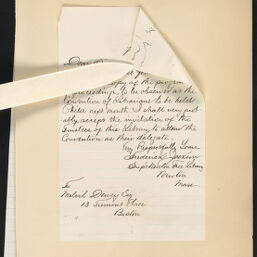 Dear
copy of the program
of proceedings to be observed at the
Convention of Librarians to be held
Phila next month. I shall very prob-
ably accept the invitation of the
Trustees of this Library to attend the
Convention as their delegate.
Very Respectfully Yours
Frederick Jackson
Supt Newton Free Library
Newton
Mass
To
Melvil Dewey Esq
13 Tremont Place
Boston